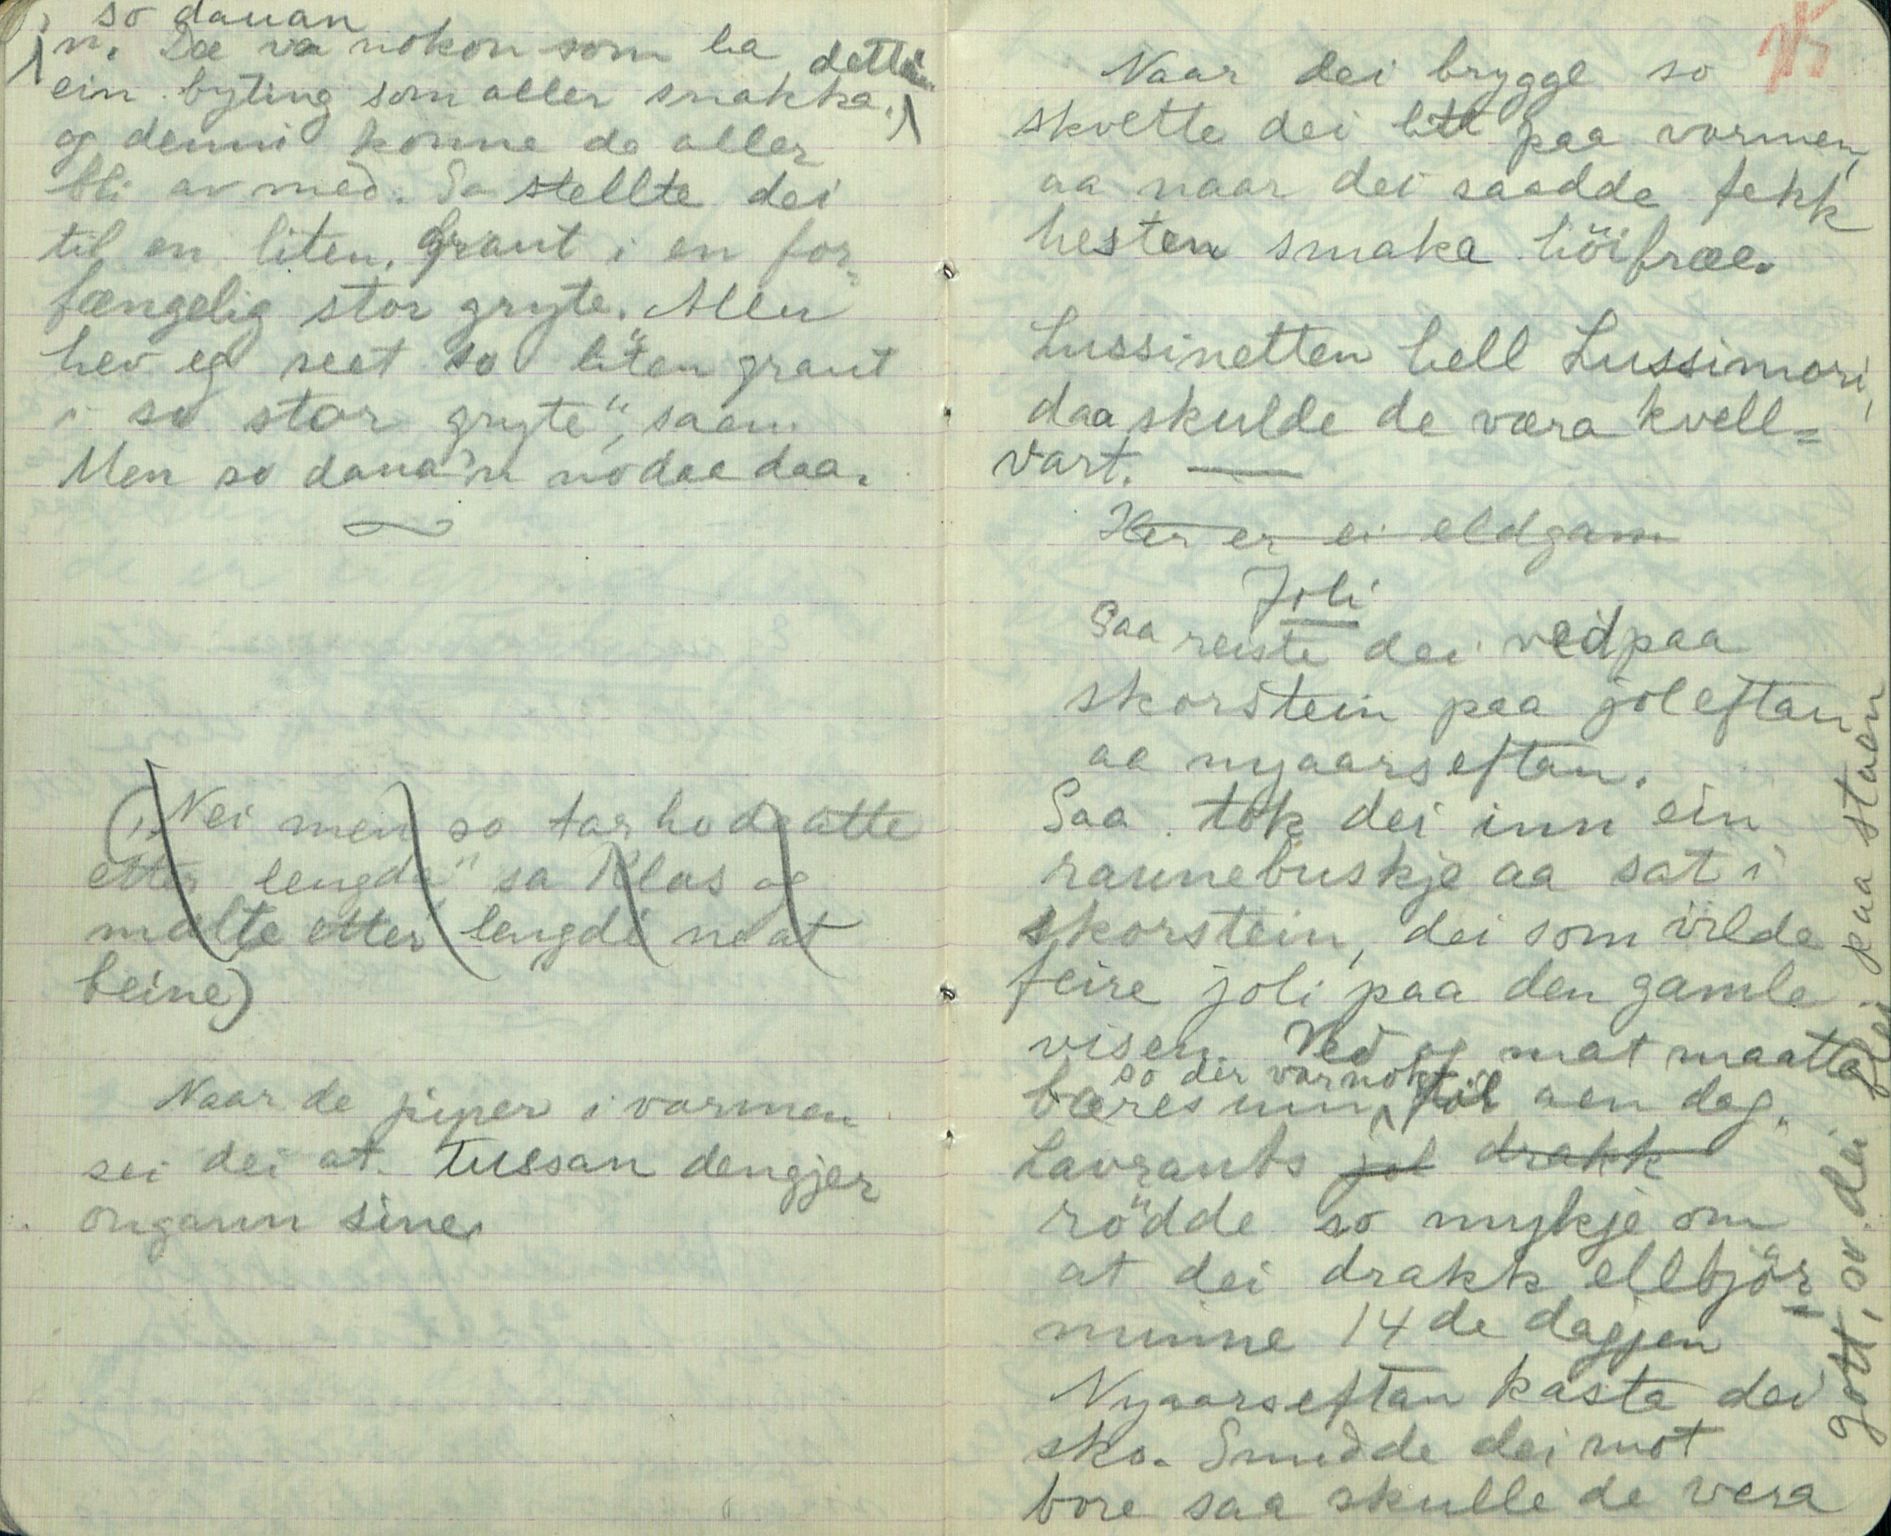 so dauan
n. Dæ va nokon som ha dette
ein byting som aller snakka.
og denni konne de aller
bli av med. Sa stellte dei
til en liten. Graut i en for-
fængelig stor gryte. Aller
hev eg seet so liten graut
i so stor gryte", saen.
Men so daua'n nodæ daa.
("Nei men so tar ho d atte
etter lengda" sa Klas og
målte etter lengdi ne at
beine)
Naar de piper i varmen
sei dei at. tussan dengjer
ongann sine.
Naar dei brygge so
skvette dei litt paa varmen,
aa naar dei saadde fekk
hesten smaka höifræe.
Lussinetten hell Lussimori,
daa skulde de væra kvell=
vart. —
Her er ei eldgam
Joli
Saa reiste dei ved paa
skorstein paa joleftan
aa nyaarseftan.
Saa tok dei inn ein
raunebuskje aa sat i
skorstein, dei som vilde
feire joli paa den gamle
visen. Ved og mat maatta
so der var nok
bæres inn, til aen dag.
Lavrants jol drakk
rödde so mykje om
at dei drakk ellbjör
minne 14de dagjen
Nyaarseftan kasta dei
sko. Snudde dei mot
bore saa skulle de vera
gott, sv. dei flej paa staen